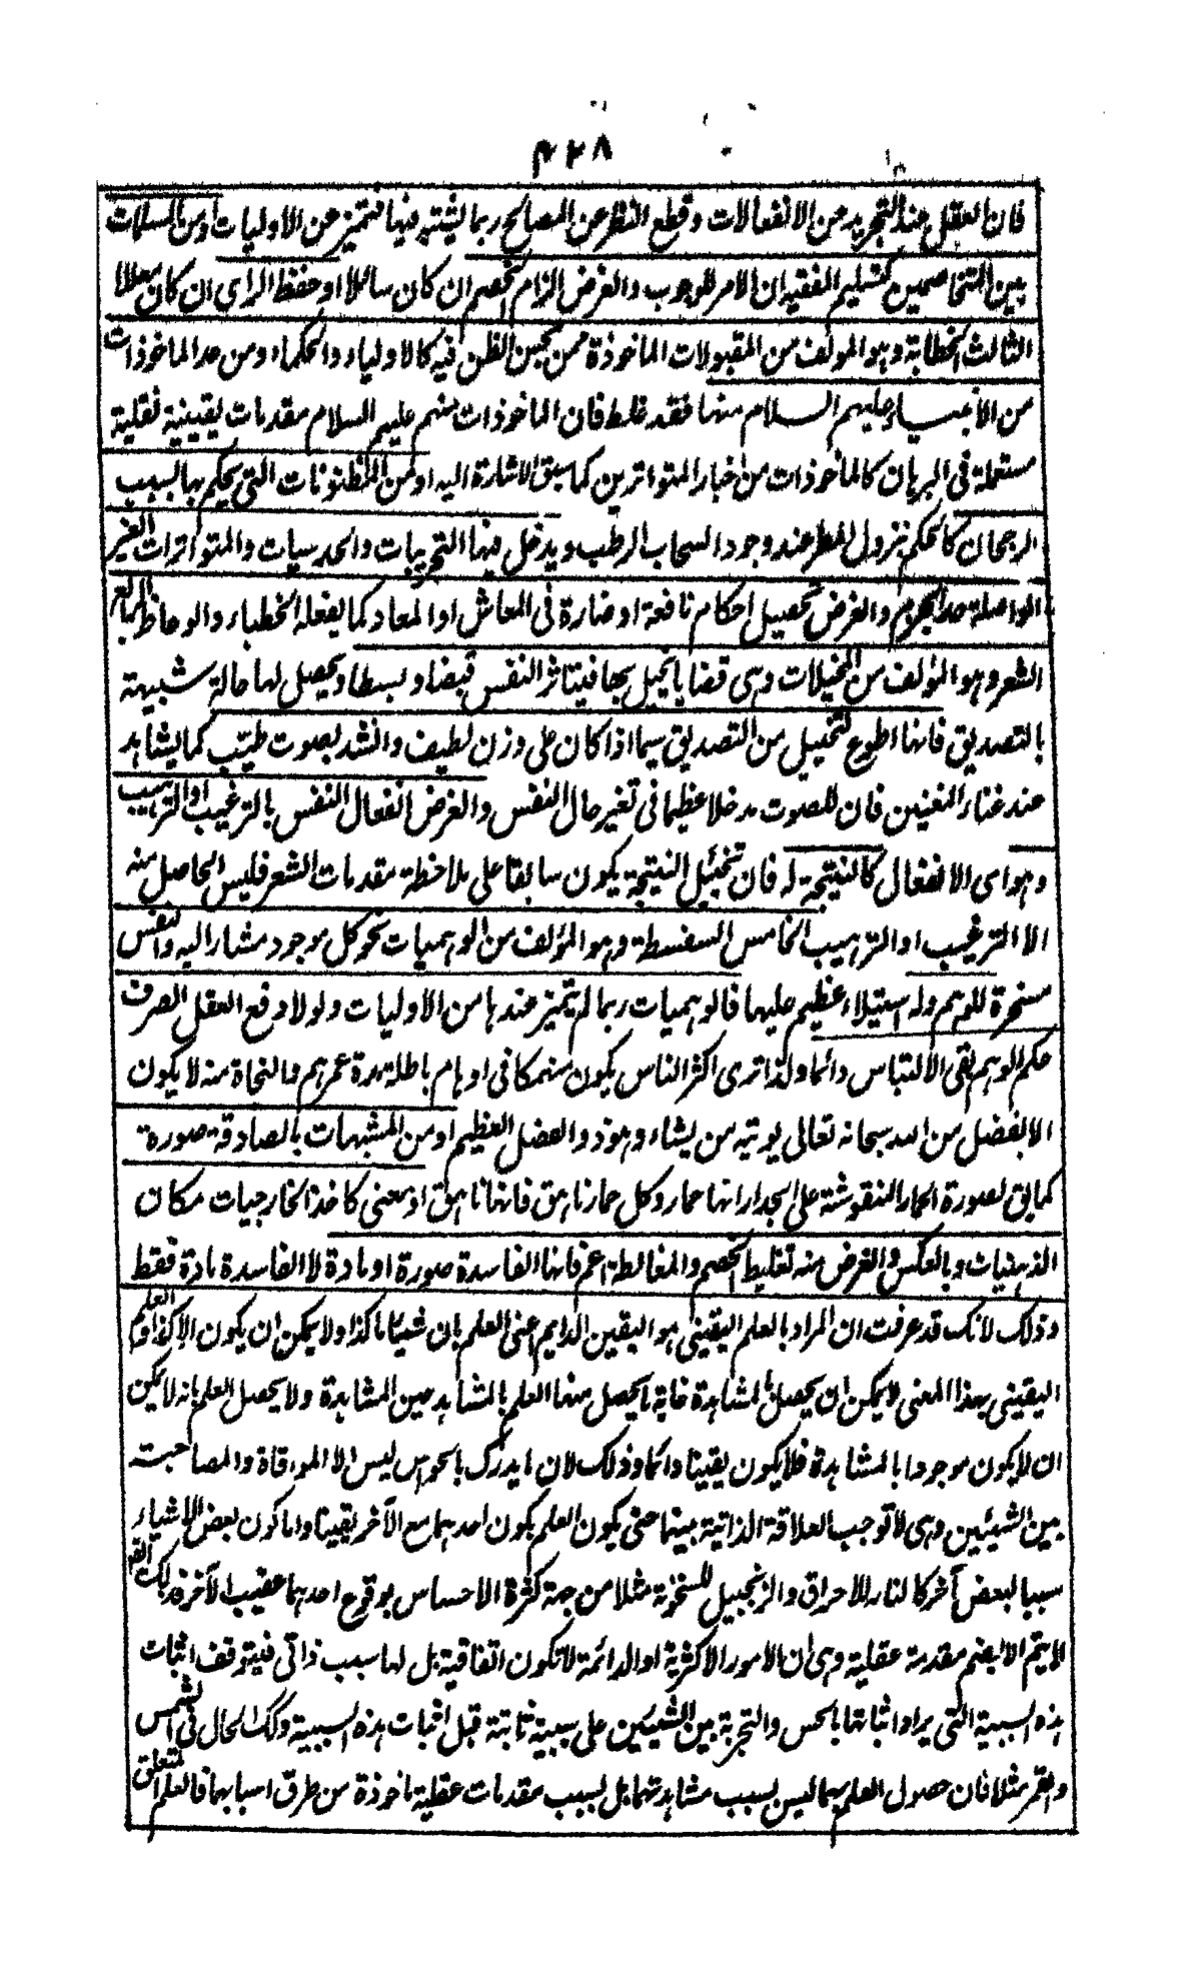 ۴۲۸
فان العقل عند التجريد من الانفعالات وقطع النظر عن المصالح ربما يشتبه فيها فتميز عن الاوليات او من المسلمات
بين المتخاصمين كتسليم الفقيه ان الامر للوجوب والغرض الزام الخصم ان كان سائلا او حفظ الراى ان كان معللا
الثالث الخطابة وهو المؤلف من المقبولات الماخوذة ممن يحسن الظن فيه كالاولياء والحكماء ومن عد الماخوذات
من الأنبياء عليهم السلام منها فقد غلط فان الماخوذات منهم عليهم السلام مقدمات يقينية نقلية
مستعملة فى البرهان كالماخوذات من اخبار المتواترين كما سبق الاشارة اليه او من المظنونات التى يحكم بها بسبب
الرجحان كالحكم بنزول المطر عند وجود السحاب الرطب ويدخل فيها التجربيات والحدسيات والمتواترات الغير
الواصلة حد الجزم والغرض تحصيل احكام نافعة او ضارة فى المعاش او المعاد كما يفعله الخطباء والوعاظ الرابع
الشعر وهو المؤلف من المخيلات وهى قضايا يخيل بها فيتاثر النفس قبضا وبسطا ويحصل لها حالة شبيهة
بالتصديق فانها اطوع للتخييل من التصديق سيما اذا كان على وزن لطيف وانشد بصوت طيب كما يشاهد
عند غناء المغنين فان للصوت مدخلا عظيما فى تغير حال النفس والغرض انفعال النفس بالترغيب او الترهيب
وهو اى الانفعال كالنتيجة له فان تخييل النتيجة يكون سابقا على ملاحظة مقدمات الشعر فليس الحاصل منه
الا الترغيب او الترهيب الخامس السفسطة وهو المؤلف من الوهميات نحو كل موجود مشار اليه والنفس
مسخرة للوهم وله استيلاء عظيم عليها فالوهميات ربما لم يتميز عندها من الاوليات ولولا دفع العقل الصرف
حكم الوهم بقى الالتباس دائما ولذا ترى اكثر الناس يكون منهمكا فى اوهام باطلة مدة عمرهم والنجاة منه لا يكون
الا بفضل من الله سبحانه تعالى يوتيه من يشاء وهو ذو الفضل العظيم او من المشبهات بالصادقة صورة
كما يق لصورة الحمار المنقوشة على الجدار انها حمار وكل حمار ناهق فانها ناهق او معنى كاخذ الخارجيات مكان
الذهنيات وبالعكس والغرض منه تغليط الخصم والمغالطة اعم فانها الفاسدة صورة او مادة لا الفاسدة مادة فقط
وذلك لانك قد عرفت ان المراد بالعلم اليقينى هو اليقين الدايم اعنى العلم بان شيئا ما كذا ولا يمكن ان يكون الا كذا والعلم
اليقينى بهذا المعنى لا يمكن ان يحصل بالمشاهدة غاية ما يحصل منها العلم بالمشاهد حين المشاهدة ولا يحصل العلم بانه لا يمكن
ان لا يكون موجودا بالمشاهدة فلا يكون يقينا دائما وذلك لان ما يدرك بالحواس ليس الا الموافاة والمصاحبت
بين الشيئين وهى لا توجب العلاقة الذاتية بينهما حتى يكون العلم بكون احدهما مع الآخر يقينا واما كون بعض الاشياء
سببا لبعض آخر كالنار للاحراق والزنجبيل للسخونة مثلا من جهة كثرة الاحساس بوقوع احدهما عقيب الآخر فذلك القدر
لا يتم الا بضم مقدمة عقلية وهى ان الامور الاكثرية او الدائمة لا تكون اتفاقية بل لها سبب ذاتى فيتوقف اثبات
هذه السببية التى يراد اثباتها بالحس والتجربة بين الشيئين على سببية ثابتة قبل اثبات هذه السببية وكذلك الحال فى الشمس
والقمر مثلا فان حصول العلم بهما ليس بسبب مشاهدتهما بل بسبب مقدمات عقلية ماخوذة من طرق اسبابهما فالعلم المتعلق